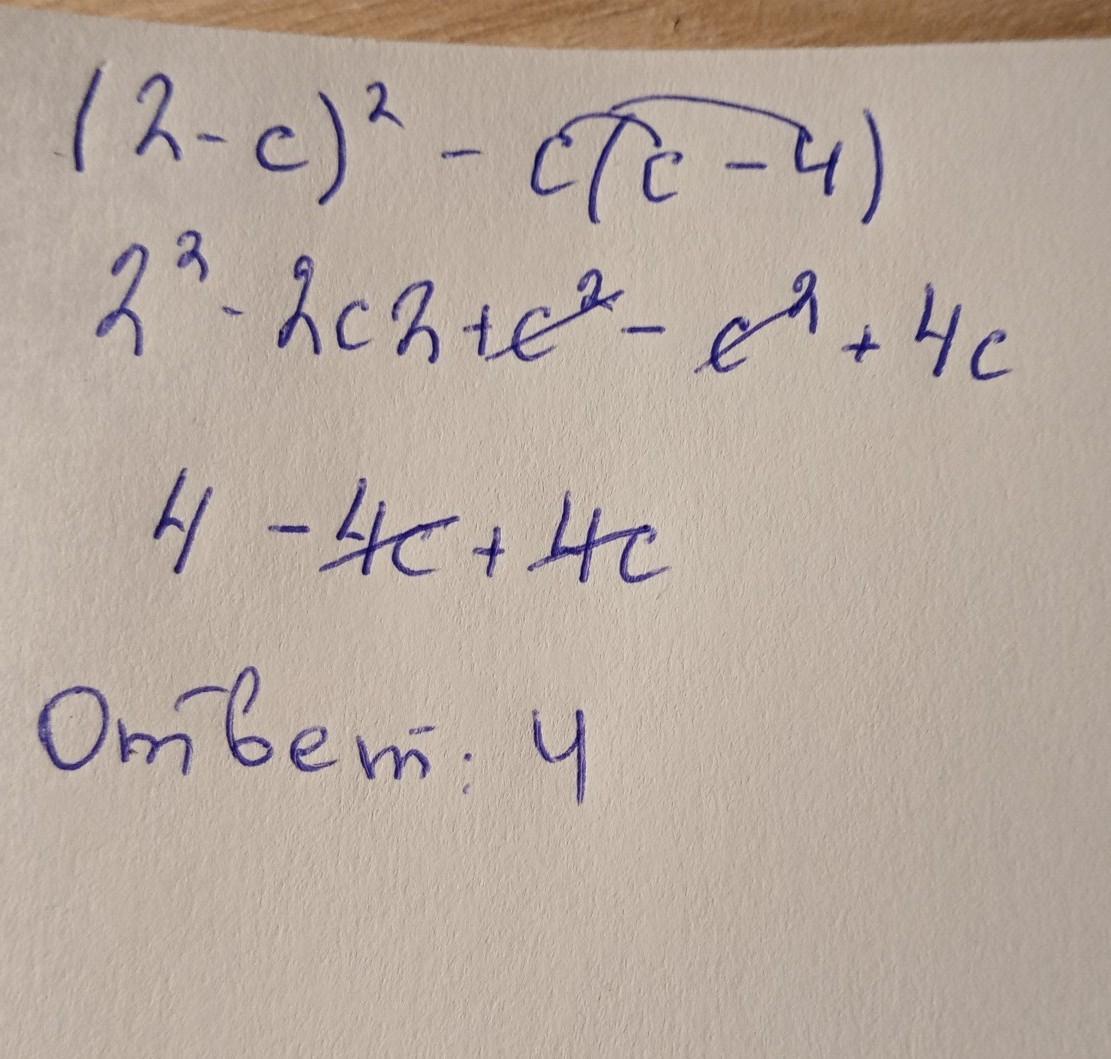 (2-c)² - c(c-4)
2² - 2c2+c² - c² + 4c
4 - 4c + 4c
Ответ: 4